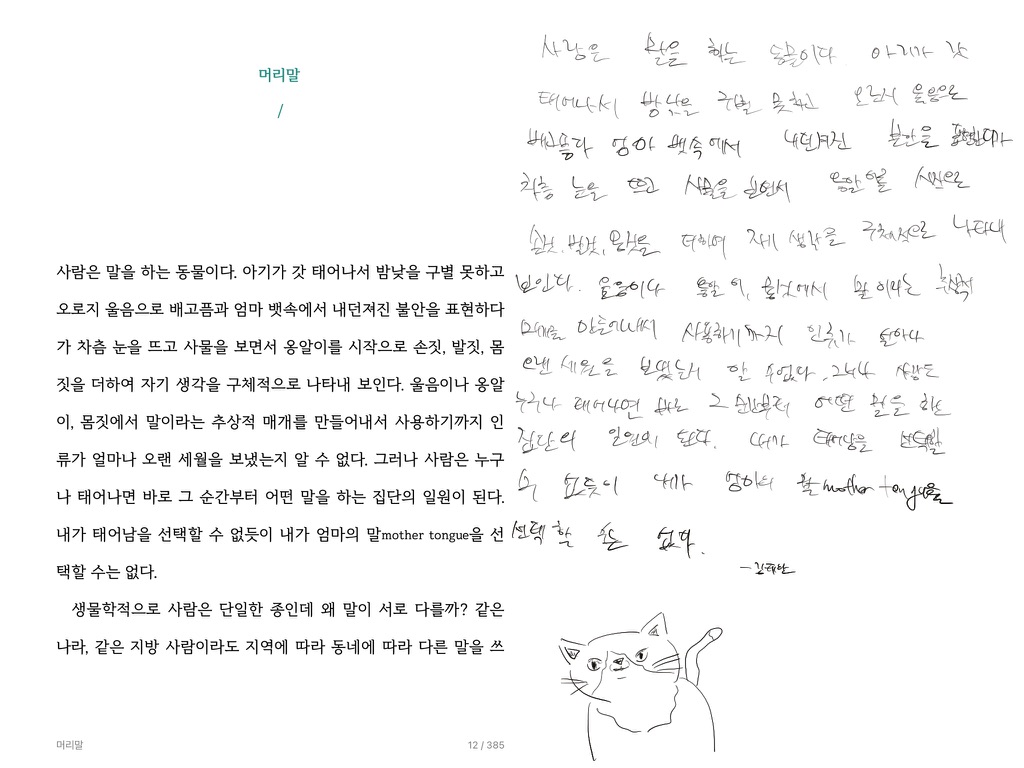 머리말
/
사람은 말을 하는 동물이다. 아기가 갓 태어나서 밤낮을 구별 못하고
오로지 울음으로 배고픔과 엄마 뱃속에서 내던져진 불안을 표현하다
가 차츰 눈을 뜨고 사물을 보면서 옹알이를 시작으로 손짓, 발짓, 몸
짓을 더하여 자기 생각을 구체적으로 나타내 보인다. 울음이나 옹알
이, 몸짓에서 말이라는 추상적 매개를 만들어내서 사용하기까지 인
류가 얼마나 오랜 세월을 보냈는지 알 수 없다. 그러나 사람은 누구
나 태어나면 바로 그 순간부터 어떤 말을 하는 집단의 일원이 된다.
내가 태어남을 선택할 수 없듯이 내가 엄마의 말mother tongue을 선
택할 수는 없다.
생물학적으로 사람은 단일한 종인데 왜 말이 서로 다를까? 같은
나라, 같은 지방 사람이라도 지역에 따라 동네에 따라 다른 말을 쓰
머리말
12 / 385
사람은 말을 하는 동물이다. 아기가 갓
태어나서 밤낮을 구별 못하고 오로지 울음으로
배고픔과 엄마 뱃속에서 내던져진 불안을 표현하다가
차츰 눈을 뜨고 사물을 보면서 옹알이를 시작으로
손짓, 발짓, 몸짓을 더하여 자기 생각을 구체적으로 나타내
보인다. 울음이나 옹알이, 몸짓에서 말이라는 추상적
매개를 만들어내서 사용하기까지 인류가 얼마나
오랜 세월을 보냈는지 알 수 없다. 그러나 사람은
누구나 태어나면 바로 그 순간부터 어떤 말을 하는
집단의 일원이 된다. 내가 태어남을 선택할
수 없듯이 내가 엄마의 말mother tongue을
선택할 수는 없다.